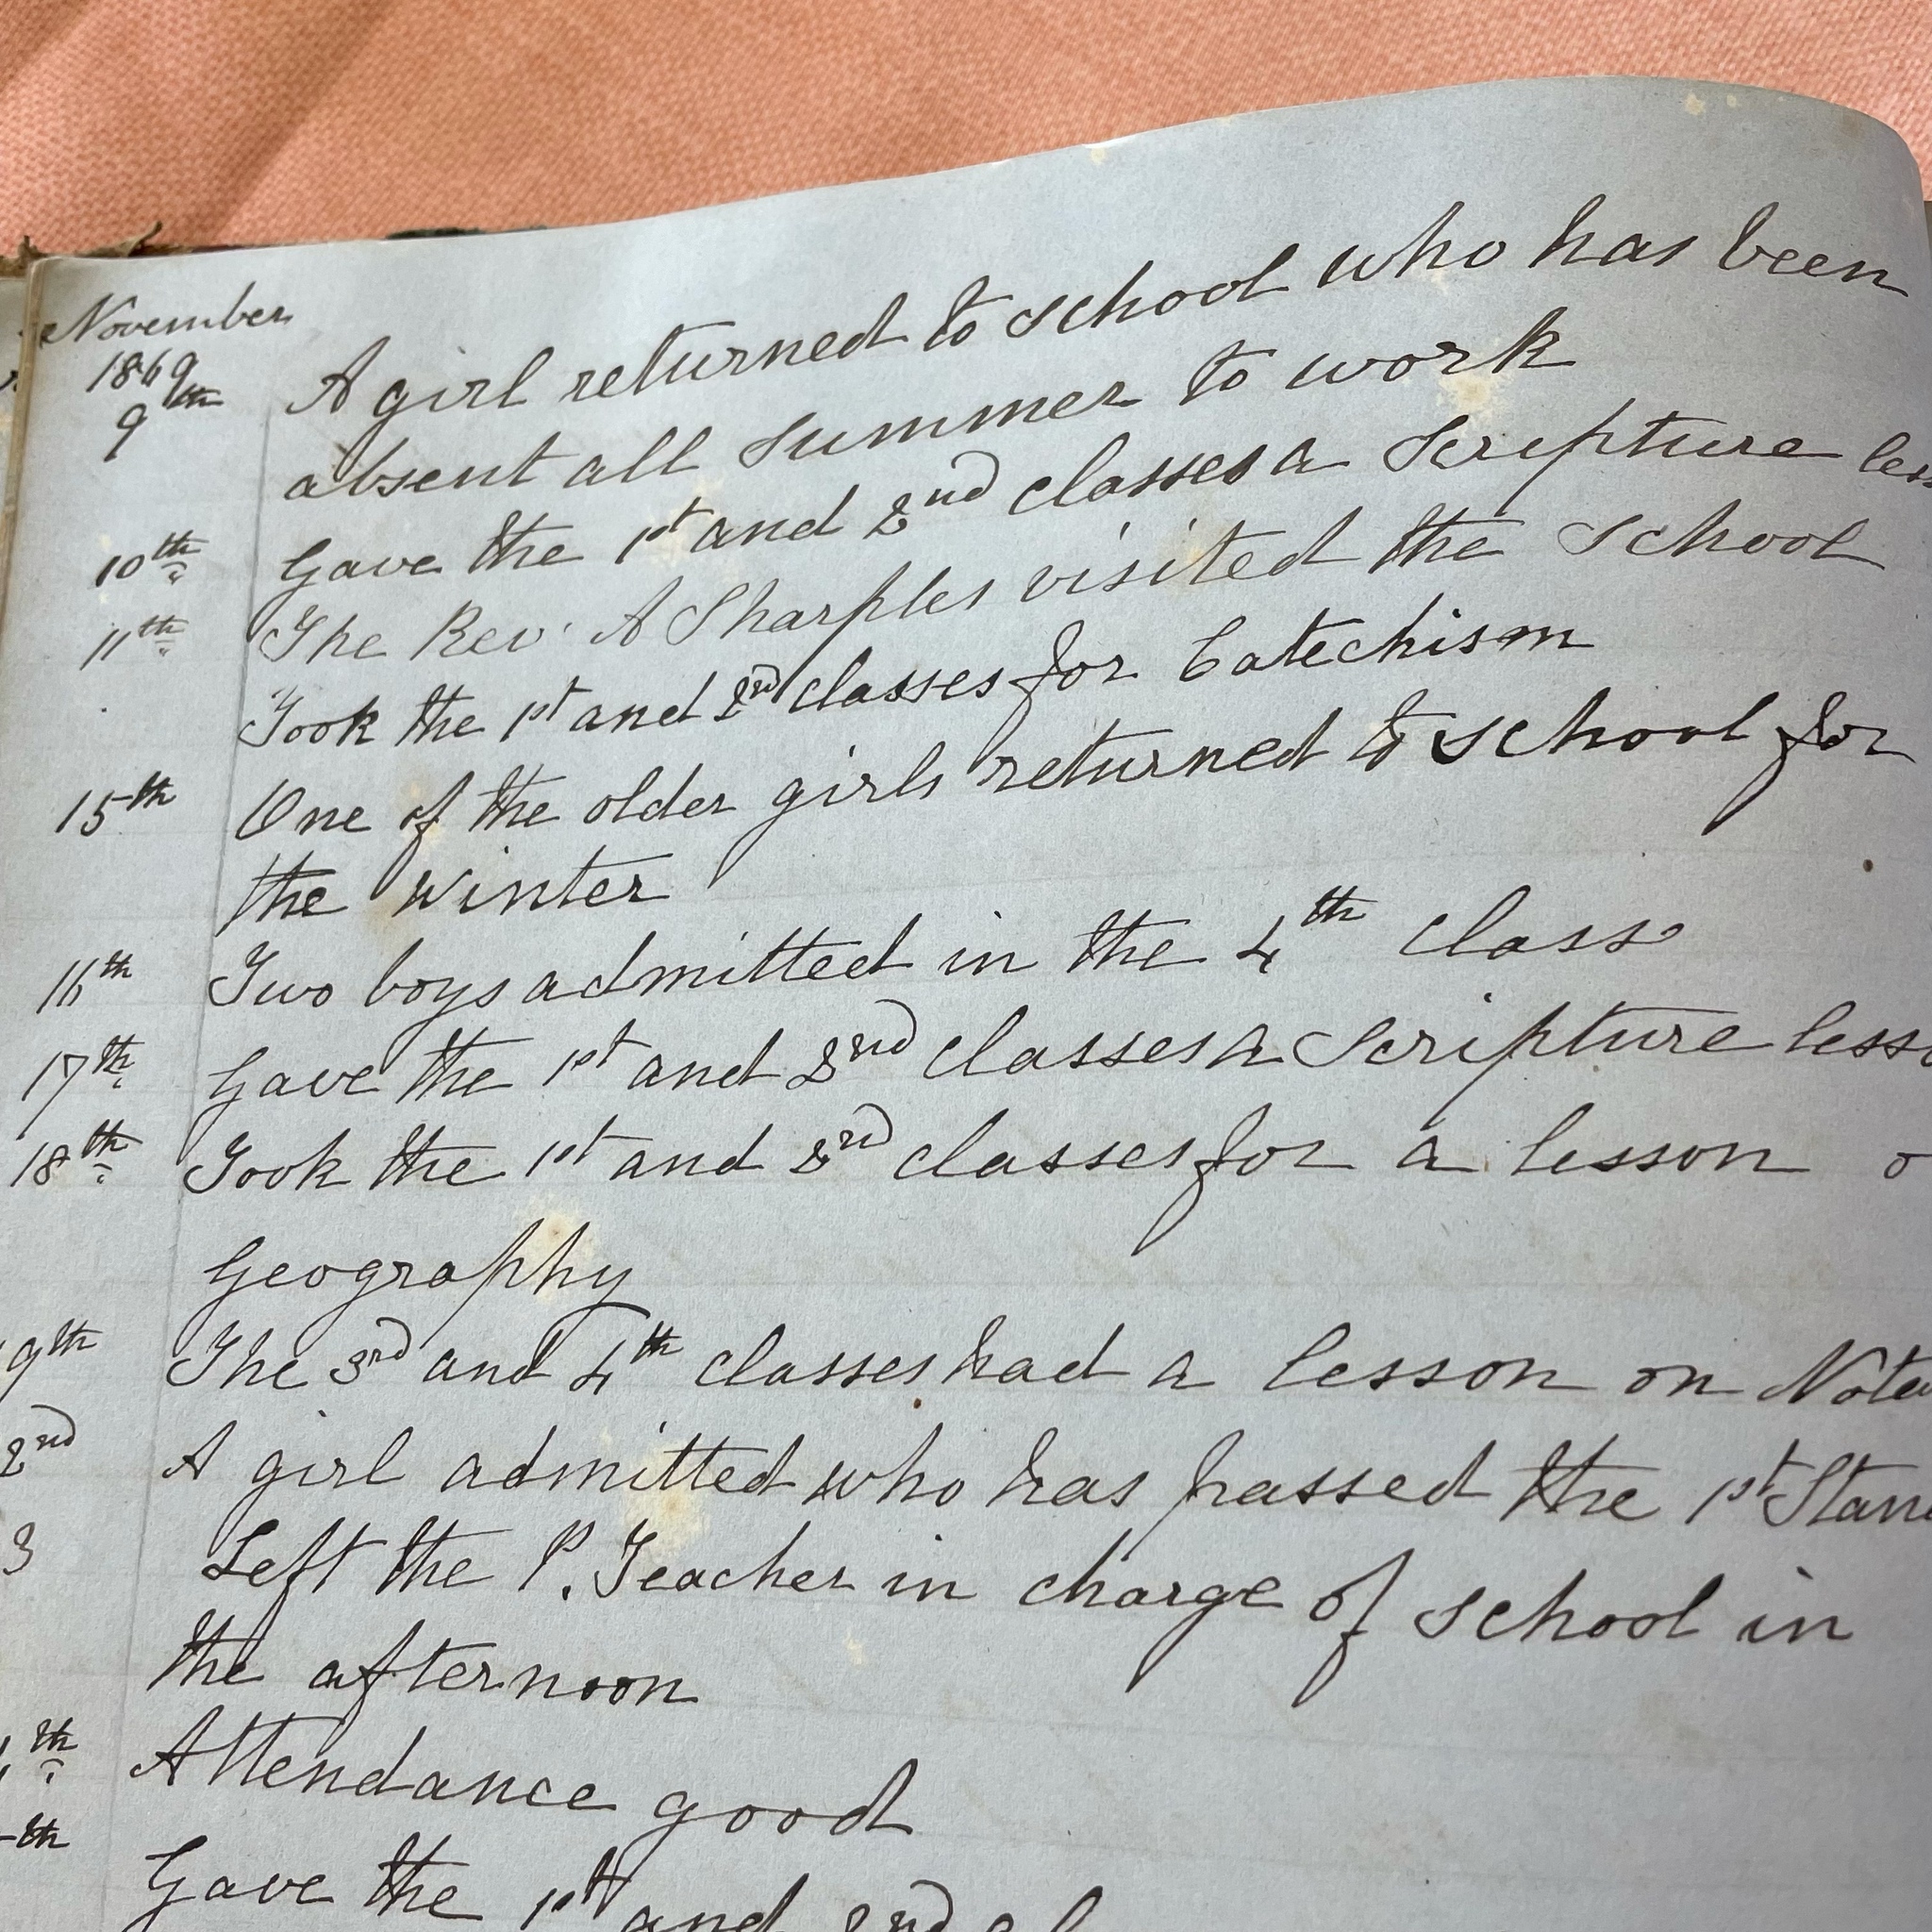 November
1869
9th A girl returned to school who has been
absent all summer to work
10th Gave the 1st and 2nd classes a Scripture les
11th The Rev. A Sharples visited the school
Took the 1st and 2nd classes for Catechism
15th One of the older girls returned to school for
the winter
16th Two boys admitted in the 4th class
17th Gave the 1st and 2nd classes a Scripture less
18th Took the 1st and 2nd classes for a lesson o
Geography
9th The 3rd and 4th classes had a lesson on Nota
2nd A girl admitted who has passed the 1st Stan
3 Left the P. Teacher in charge of school in
the afternoon
th Attendance good
th Gave the 1st and 2nd cl